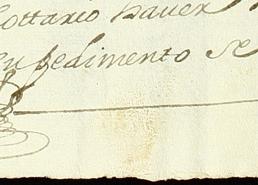 lottario hauer
ju sedimento se